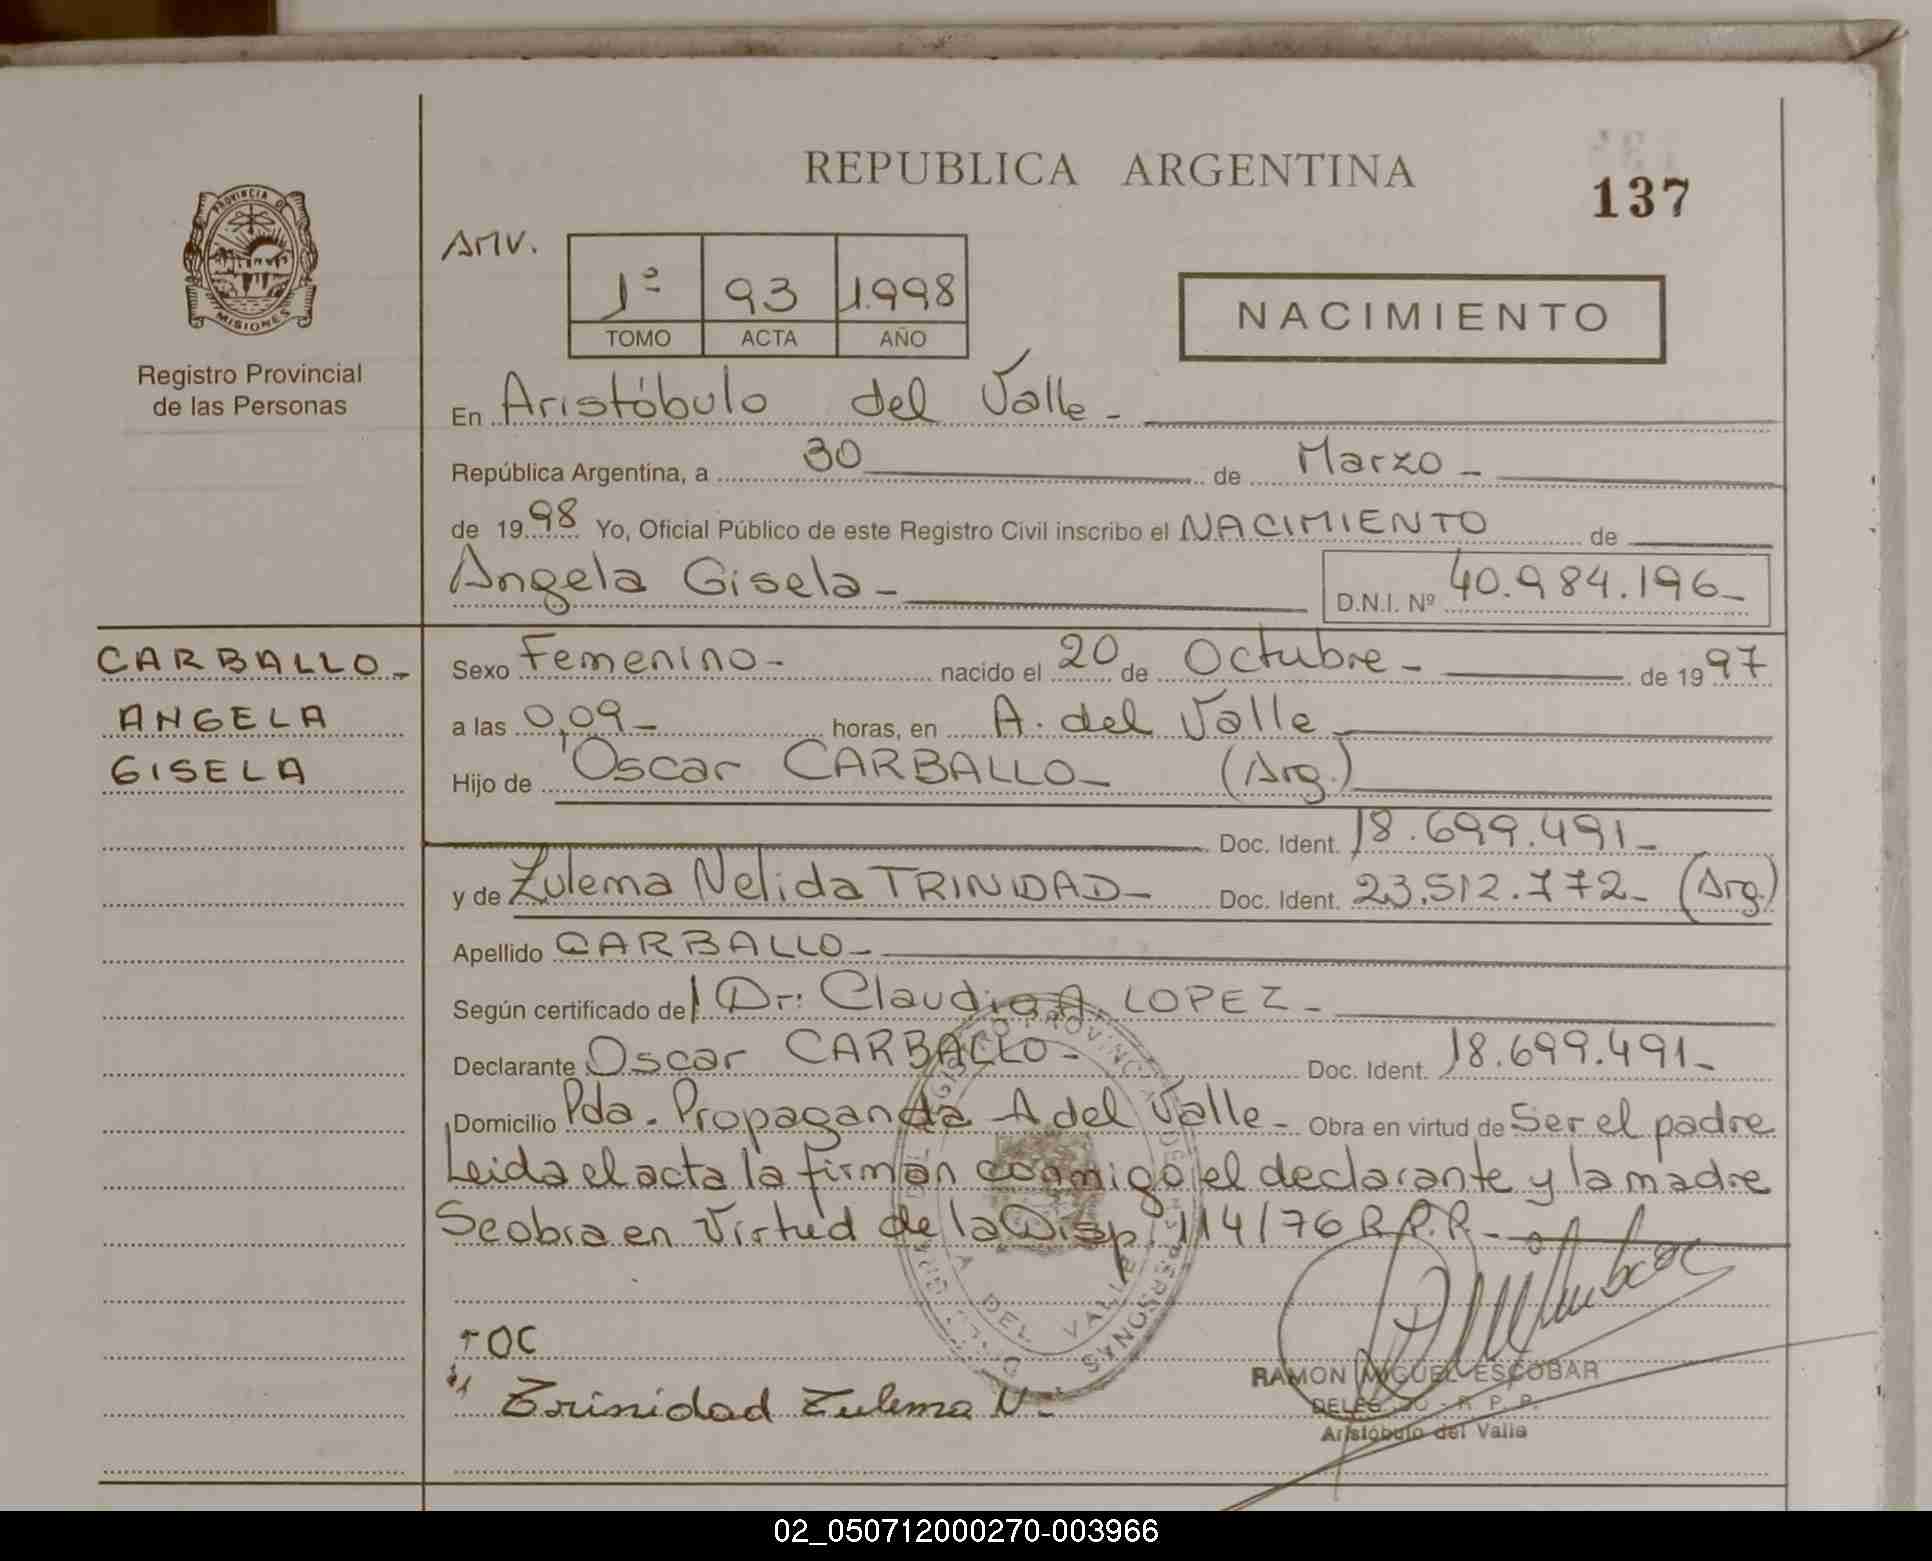 REPUBLICA ARGENTINA
137
PROVINCIA DE
MISIONES
Registro Provincial
de las Personas
AMV.
1º 93 1.998
TOMO ACTA AÑO
NACIMIENTO
En Aristóbulo del Valle -
República Argentina, a 30 de Marzo -
de 1998 Yo, Oficial Público de este Registro Civil inscribo el NACIMIENTO de
Angela Gisela -
D.N.I. Nº 40.984.196-
CARBALLO -
ANGELA
GISELA
Sexo Femenino - nacido el 20 de Octubre - de 1997
a las 0,09 - horas, en A. del Valle
Hijo de Oscar CARBALLO - (Arg.)
Doc. Ident. 18.699.491-
y de Zulema Nelida TRINIDAD - Doc. Ident. 23.512.772- (Arg.)
Apellido CARBALLO -
Según certificado del Dr: Claudio A LOPEZ -
Declarante Oscar CARBALLO - Doc. Ident. 18.699.491-
Domicilio Pda. Propaganda A del Valle - Obra en virtud de Ser el padre
Leida el acta la firman conmigo el declarante y la madre
Se obra en Virtud de la Disp. 114/76 R.P.P. -
OC
Trinidad Zulema N.
RAMON MIGUEL ESCOBAR
R. P. P.
Aristóbulo del Valle
A DEL VALLE
02_050712000270-003966